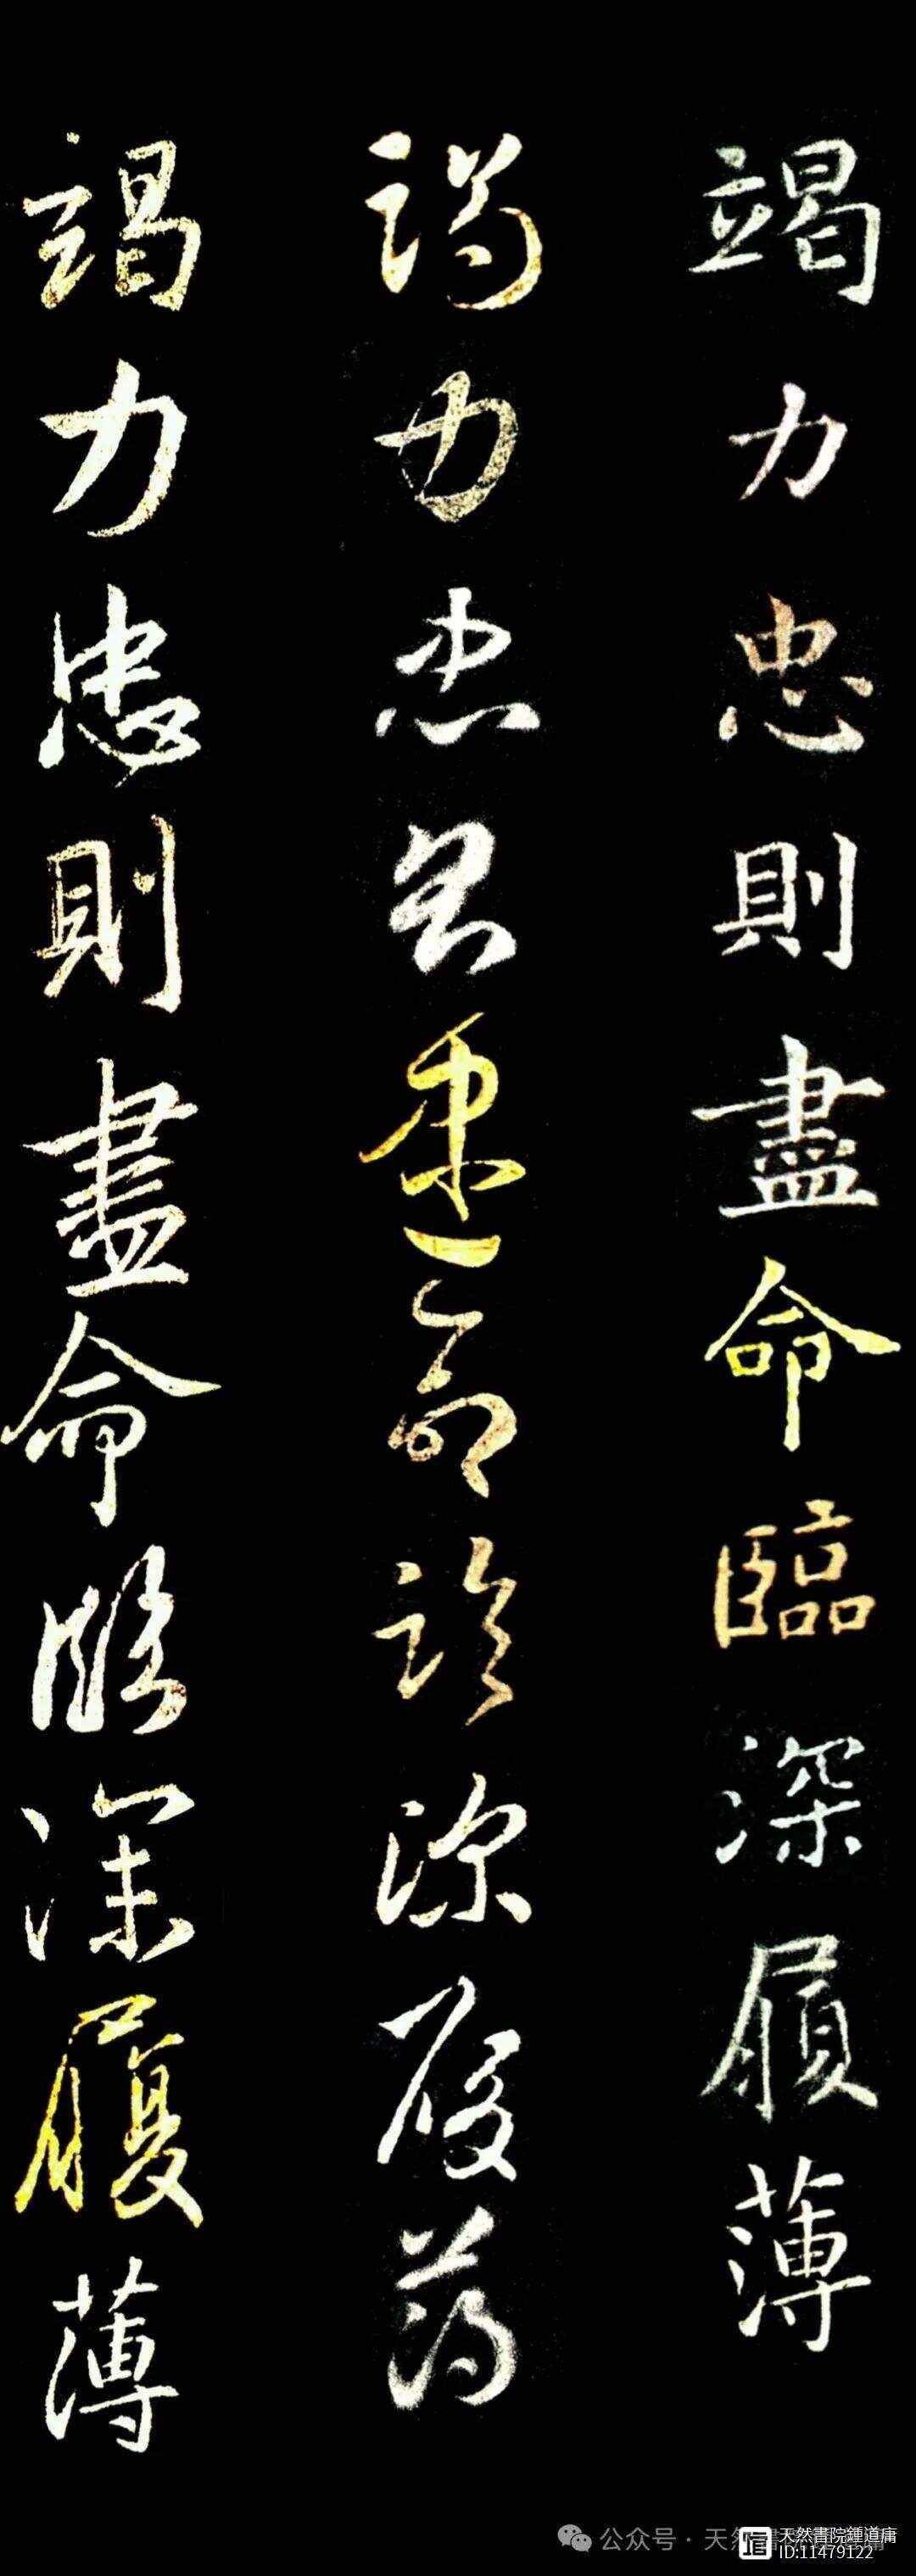 竭力忠則盡命臨深履薄
竭力忠則盡命臨深履薄
竭力忠則盡命臨深履薄
公众号·天然書院鍾道庸
天然書院鍾道庸
ID:11479122